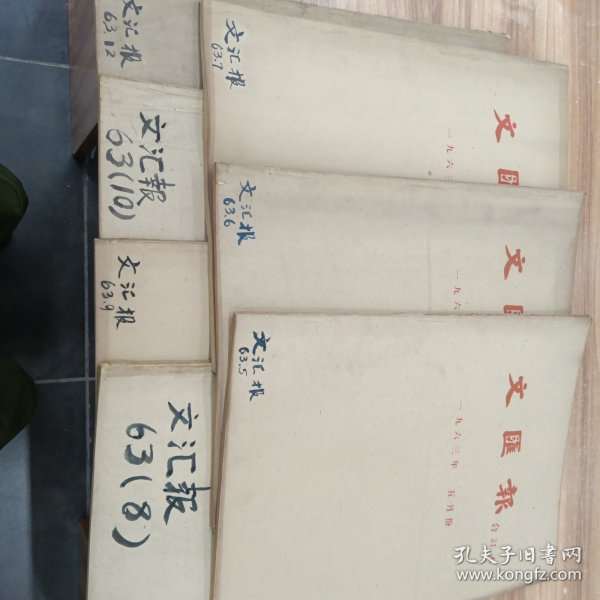 文汇报
63.12
文汇報
63(10)
文汇报
63.9
文汇报
63(8)
文汇报
63.7
文匯
一九六三
文汇报
63.6
文匯
一九六
文汇报
63.5
文匯報
合訂
一九六三年 五月份
孔夫子旧书网
www.kongfz.com